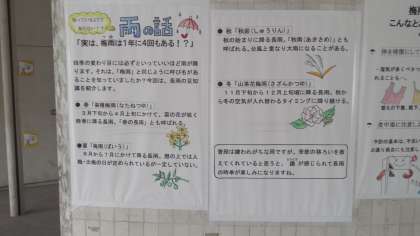 雨の話
「実は、梅雨は1年に4回もある！？」
四季の変わり目には必ずといっていいほど雨が降
ります。それは、「梅雨」と同じように呼び名があ
ることを知っていましたか？今回は、長雨の豆知
識を紹介します。
● 春「菜種梅雨（なたねつゆ）」
3月下旬から4月上旬にかけて、菜の花が咲く
時季に降る長雨。「春の長雨」とも呼ばれる。
●夏「梅雨（ばいう）」
6月から7月にかけて降る長雨。暦の上では入
梅・出梅の日が定められているが一定していない。
● 秋「秋雨（しゅうりん）」
秋の始まりに降る長雨。「秋雨（あきさめ）」とも
呼ばれる。台風と重なり大雨になることがある。
● 冬「山茶花梅雨（さざんかつゆ）」
11月下旬から12月上旬頃に降る長雨。秋か
ら冬の空気が入れ替わるタイミングに降り続ける。
普段は嫌われがちな雨ですが、季節の移ろいを教
えてくれていると思うと、「趣」が感じられて長雨
の時季が楽しみになりますね。
梅雨
こんなと